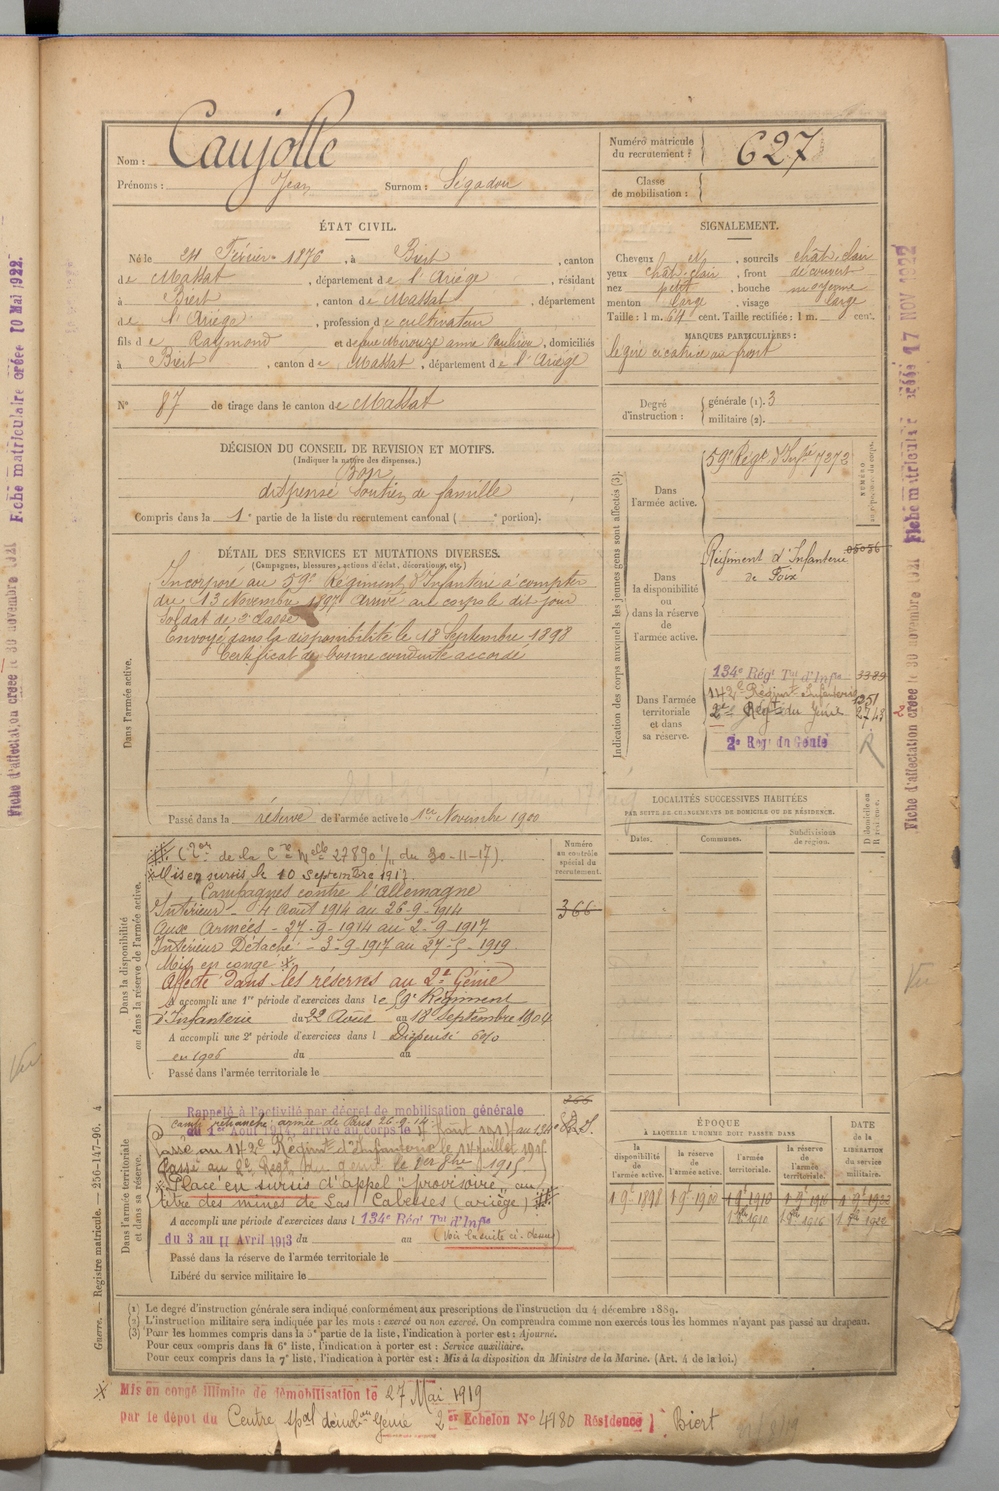 Nom : Caujolle
Prénoms : Jean Surnom : Ségadou
Numéro matricule du recrutement : 627
Classe de mobilisation :
ÉTAT CIVIL.
Né le 24 Février 1876, à Biert, canton
de Massat, département de l'Ariège, résidant
à Biert, canton de Massat, département
de l'Ariège, profession de cultivateur
fils de Raymond et de feue Mirouze anne, domiciliés
à Biert, canton de Massat, département de l'Ariège
N° 87 de tirage dans le canton de Massat
SIGNALEMENT.
Cheveux N, sourcils chât-clair
yeux chât-clair, front découvert
nez petit, bouche moyenne
menton large, visage large
Taille : 1 m. 64 cent. Taille rectifiée : 1 m. cent.
MARQUES PARTICULIÈRES :
légère cicatrice au front
Degré d'instruction : générale (1). 3
militaire (2).
DÉCISION DU CONSEIL DE REVISION ET MOTIFS.
(Indiquer la nature des dispenses.)
Bon
dispensé soutien de famille
Compris dans la 1e partie de la liste du recrutement cantonal ( e portion).
DÉTAIL DES SERVICES ET MUTATIONS DIVERSES.
(Campagnes, blessures, actions d'éclat, décorations, etc.)
Dans l'armée active.
Incorporé au 59e Régiment d'Infanterie à compter
du 13 Novembre 1897 arrivé au corps le dit jour
Soldat de 2e classe
Envoyé dans la disponibilité le 18 Septembre 1898
Certificat de bonne conduite accordé
Passé dans la réserve de l'armée active le 1er Novembre 1900
Indication des corps auxquels les jeunes gens sont affectés (3).
NUMÉRO au répertoire du corps.
Dans l'armée active.
59e Régt d'Infie 7272
Dans la disponibilité ou dans la réserve de l'armée active.
Régiment d'Infanterie 05056
de Foix
Dans l'armée territoriale et dans sa réserve.
134e Régt Tal d'Infie 3389
142e Régimt Infanterie 1351
2e Régt du Génie 2743
2e Régt du Génie R
LOCALITÉS SUCCESSIVES HABITÉES
PAR SUITE DE CHANGEMENTS DE DOMICILE OU DE RÉSIDENCE.
Dates. Communes. Subdivisions de région. D. domicile ou R. résidence.
Dans la disponibilité ou dans la réserve de l'armée active.
Numéro au contrôle spécial du recrutement.
366
de la Cre Melle 27890 1/11 du 30-11-17).
Mis en sursis le 10 Septembre 1917.
Campagnes contre l'allemagne
Intérieur - 4 Août 1914 au 26-9-1914
Aux Armées - 27-9-1914 au 2-9-1917
Intérieur Détaché - 3-9-1917 au 27-5-1919
Mis en congé
Affecté dans les réserves au 2e Génie
A accompli une 1re période d'exercices dans le 59e Régiment
d'Infanterie du 22 Août au 18 Septembre 1904
A accompli une 2e période d'exercices dans l Dispensé 6%
en 1906 du au
Passé dans l'armée territoriale le
Dans l'armée territoriale et dans sa réserve.
366
Rappelé à l'activité par décret de mobilisation générale
camp retranché armée de Paris 26-9-14
du 1er Août 1914, arrivé au corps le
Passé au 142e Régiment d'Infanterie le 14 Juillet 1915
Passé au 2e Régt du génie le 1915
Placé en sursis d'appel "provisoire" au
titre des mines de Las Cabesses (ariège)
A accompli une période d'exercices dans l 134e Régt Tal d'Infie
du 3 au 11 Avril 1913 du au (Voir la suite ci-dessus)
Passé dans la réserve de l'armée territoriale le
Libéré du service militaire le
ÉPOQUE
À LAQUELLE L'HOMME DOIT PASSER DANS
la disponibilité de l'armée active. la réserve de l'armée active. l'armée territoriale. la réserve de l'armée territoriale. DATE de la LIBÉRATION du service militaire.
1 9e 1898 1 9e 1900 1 9e 1910 1 9e 1916 1 9e 1922
1 8bre 1910 1 8bre 1916 1 8bre 1922
(1) Le degré d'instruction générale sera indiqué conformément aux prescriptions de l'instruction du 4 décembre 1889.
(2) L'instruction militaire sera indiquée par les mots : exercé ou non exercé. On comprendra comme non exercés tous les hommes n'ayant pas passé au drapeau.
(3) Pour les hommes compris dans la 5e partie de la liste, l'indication à porter est : Ajourné.
Pour ceux compris dans la 6e liste, l'indication à porter est : Service auxiliaire.
Pour ceux compris dans la 7e liste, l'indication à porter est : Mis à la disposition du Ministre de la Marine. (Art. 4 de la loi.)
Mis en congé illimité de démobilisation le 27 Mai 1919
par le dépot du Centre spal démobon Génie 2e Echelon N° 4980 Résidence Biert
Guerre. — Registre matricule. — 256-147-96. 4
Fiche d'affectation créée le 30 novembre 1921 Fiche matriculaire créée 10 Mai 1922.
Fiche d'affectation créée le 30 novembre 1921 Fiche matriculaire créée 17 NOV 1922
Vu
Vu